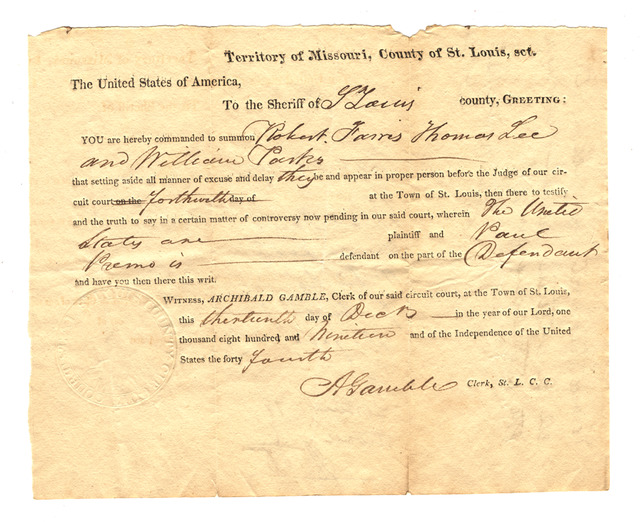 Territory of Missouri, County of St. Louis, sct.
The United States of America,
To the Sheriff of St Louis county, GREETING:
YOU are hereby commanded to summon Robert Farris Thomas Lee
and William Parks
that setting aside all manner of excuse and delay they be and appear in proper person before the Judge of our cir-
cuit court on the forthwith day of at the Town of St. Louis, then there to testify
and the truth to say in a certain matter of controversy now pending in our said court, wherein The United
States are plaintiff and Paul
Premo is defendant on the part of the Defendant
and have you then there this writ.
WITNESS, ARCHIBALD GAMBLE, Clerk of our said circuit court, at the Town of St. Louis,
this thirteenth day of Decr in the year of our Lord, one
thousand eight hundred and Nineteen and of the Independence of the United
States the forty fourth
A Gamble Clerk, St. L. C. C.